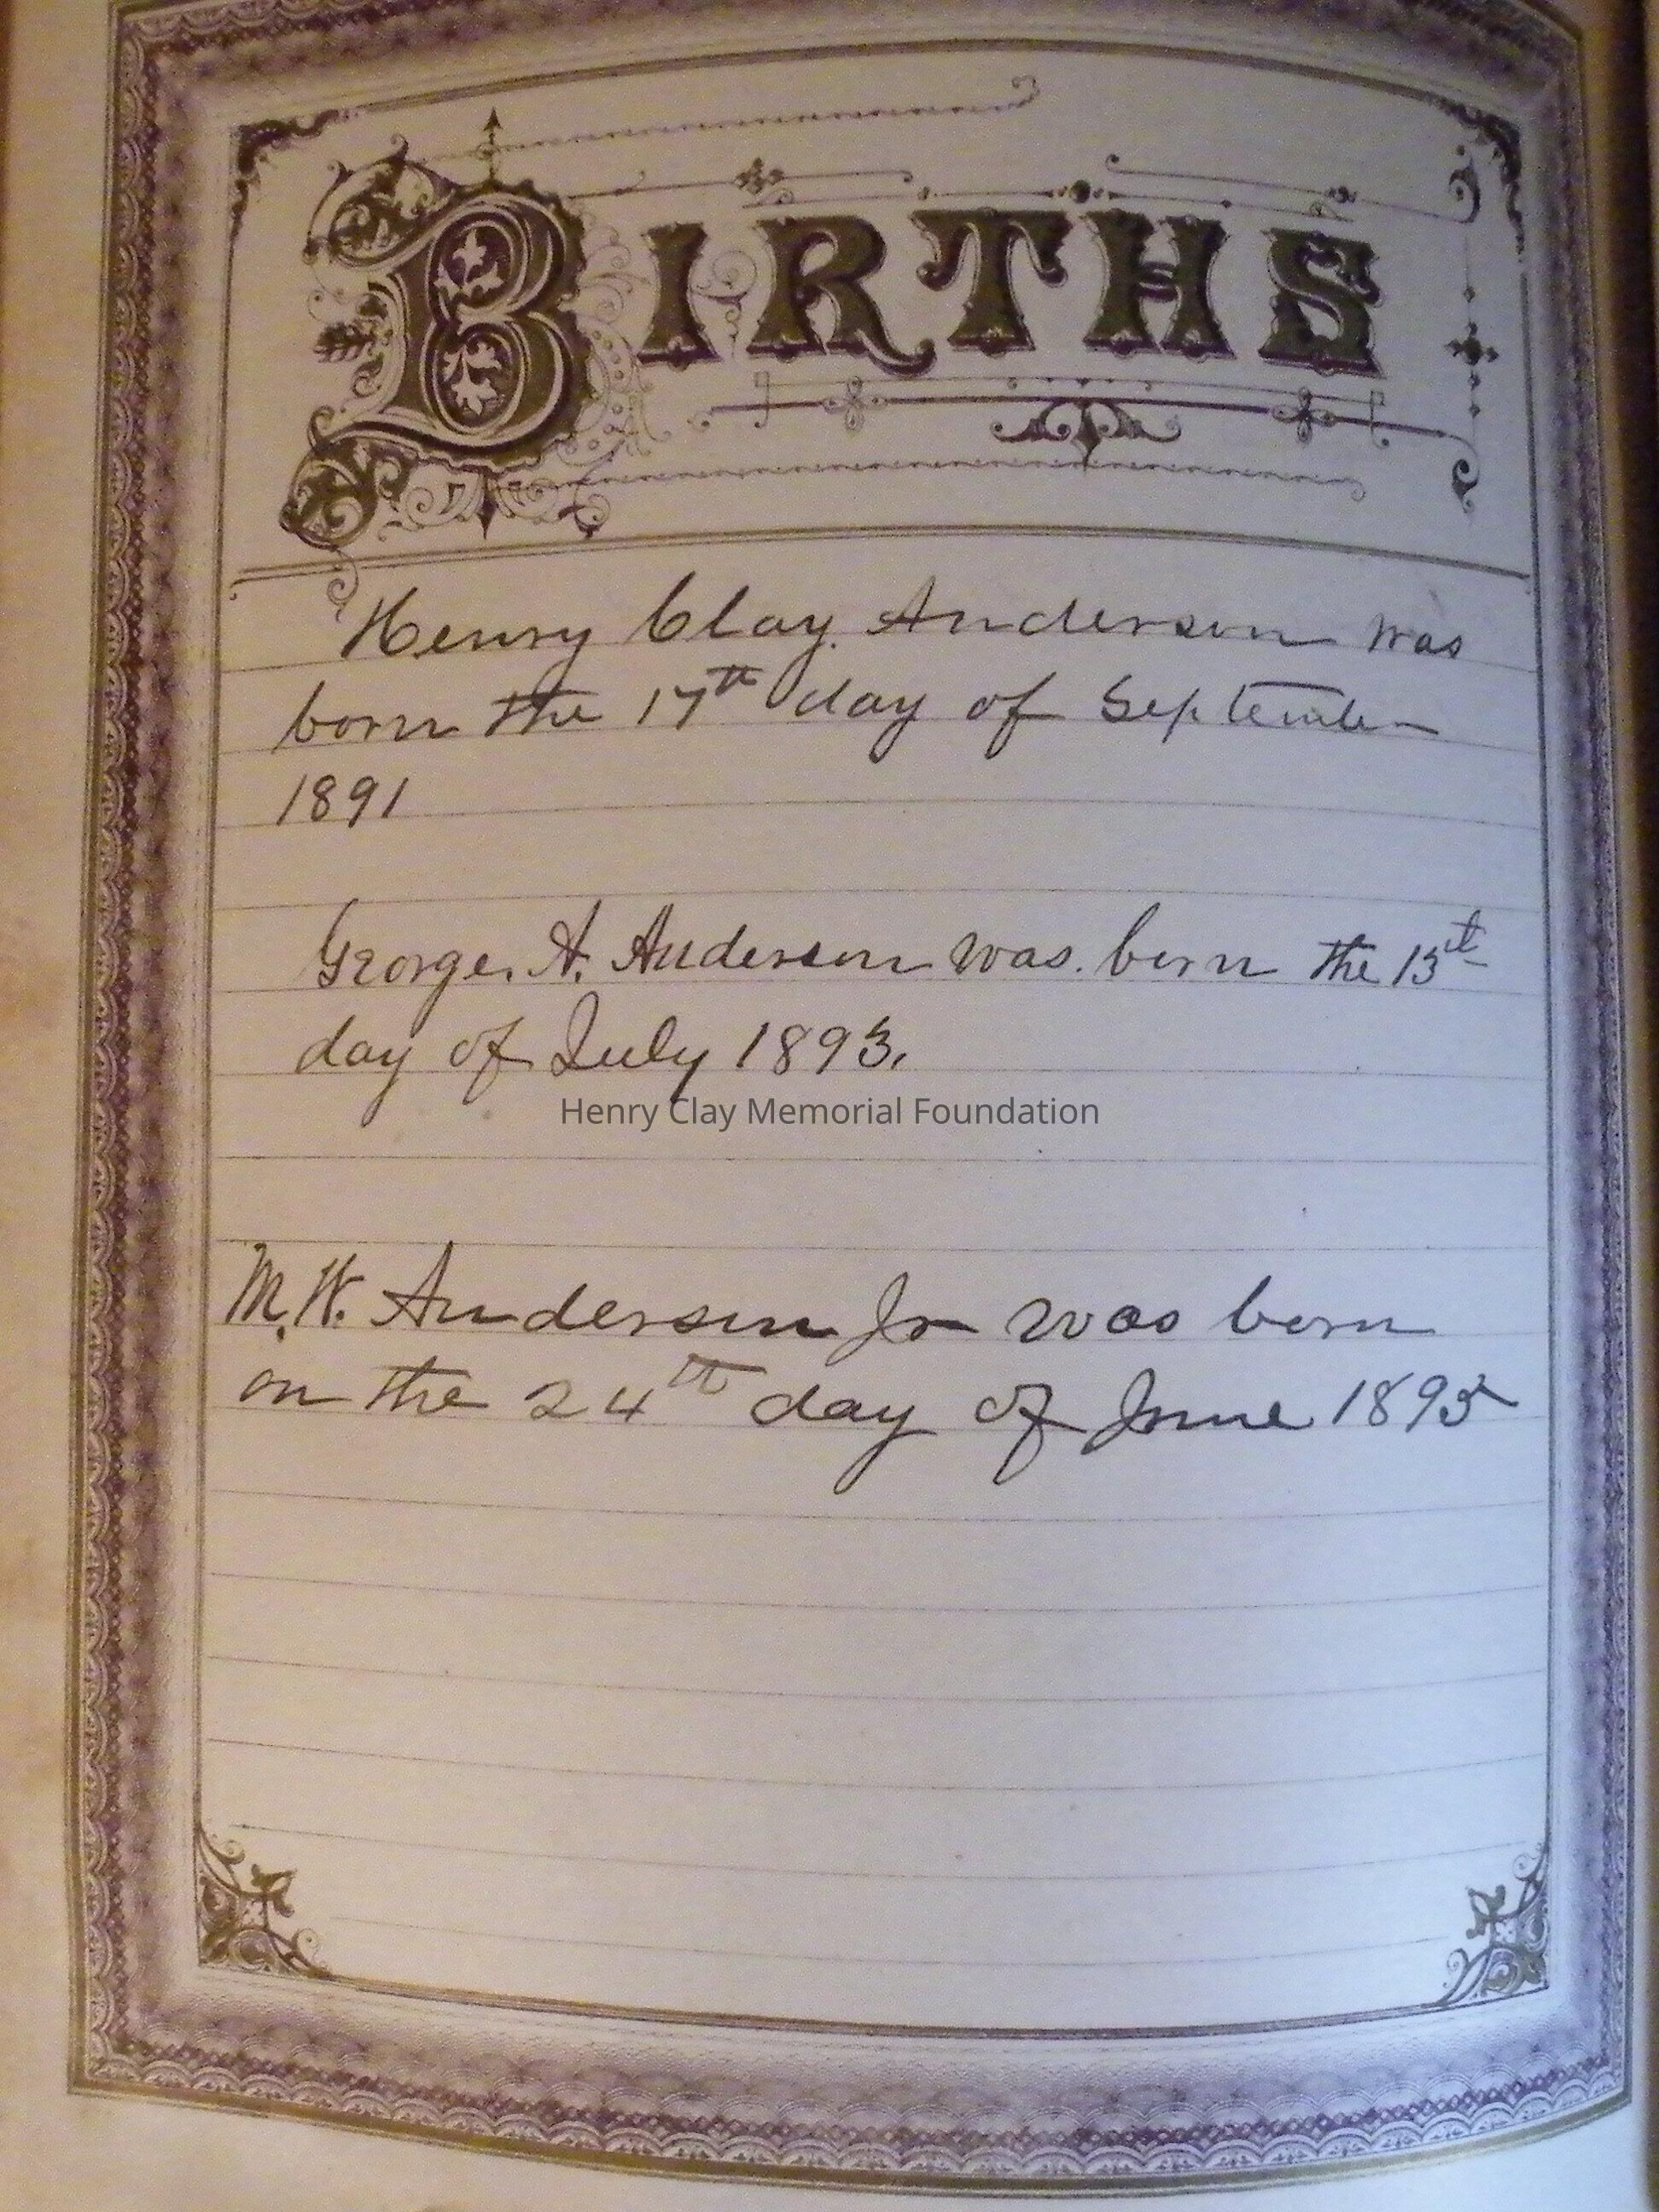 BIRTHS
Henry Clay Anderson was
born the 17th day of September
1891
George. A. Anderson was. born the 13st
day of July 1893.
Henry Clay Memorial Foundation
M. W. Anderson Jr was born
on the 24th day of June 1895